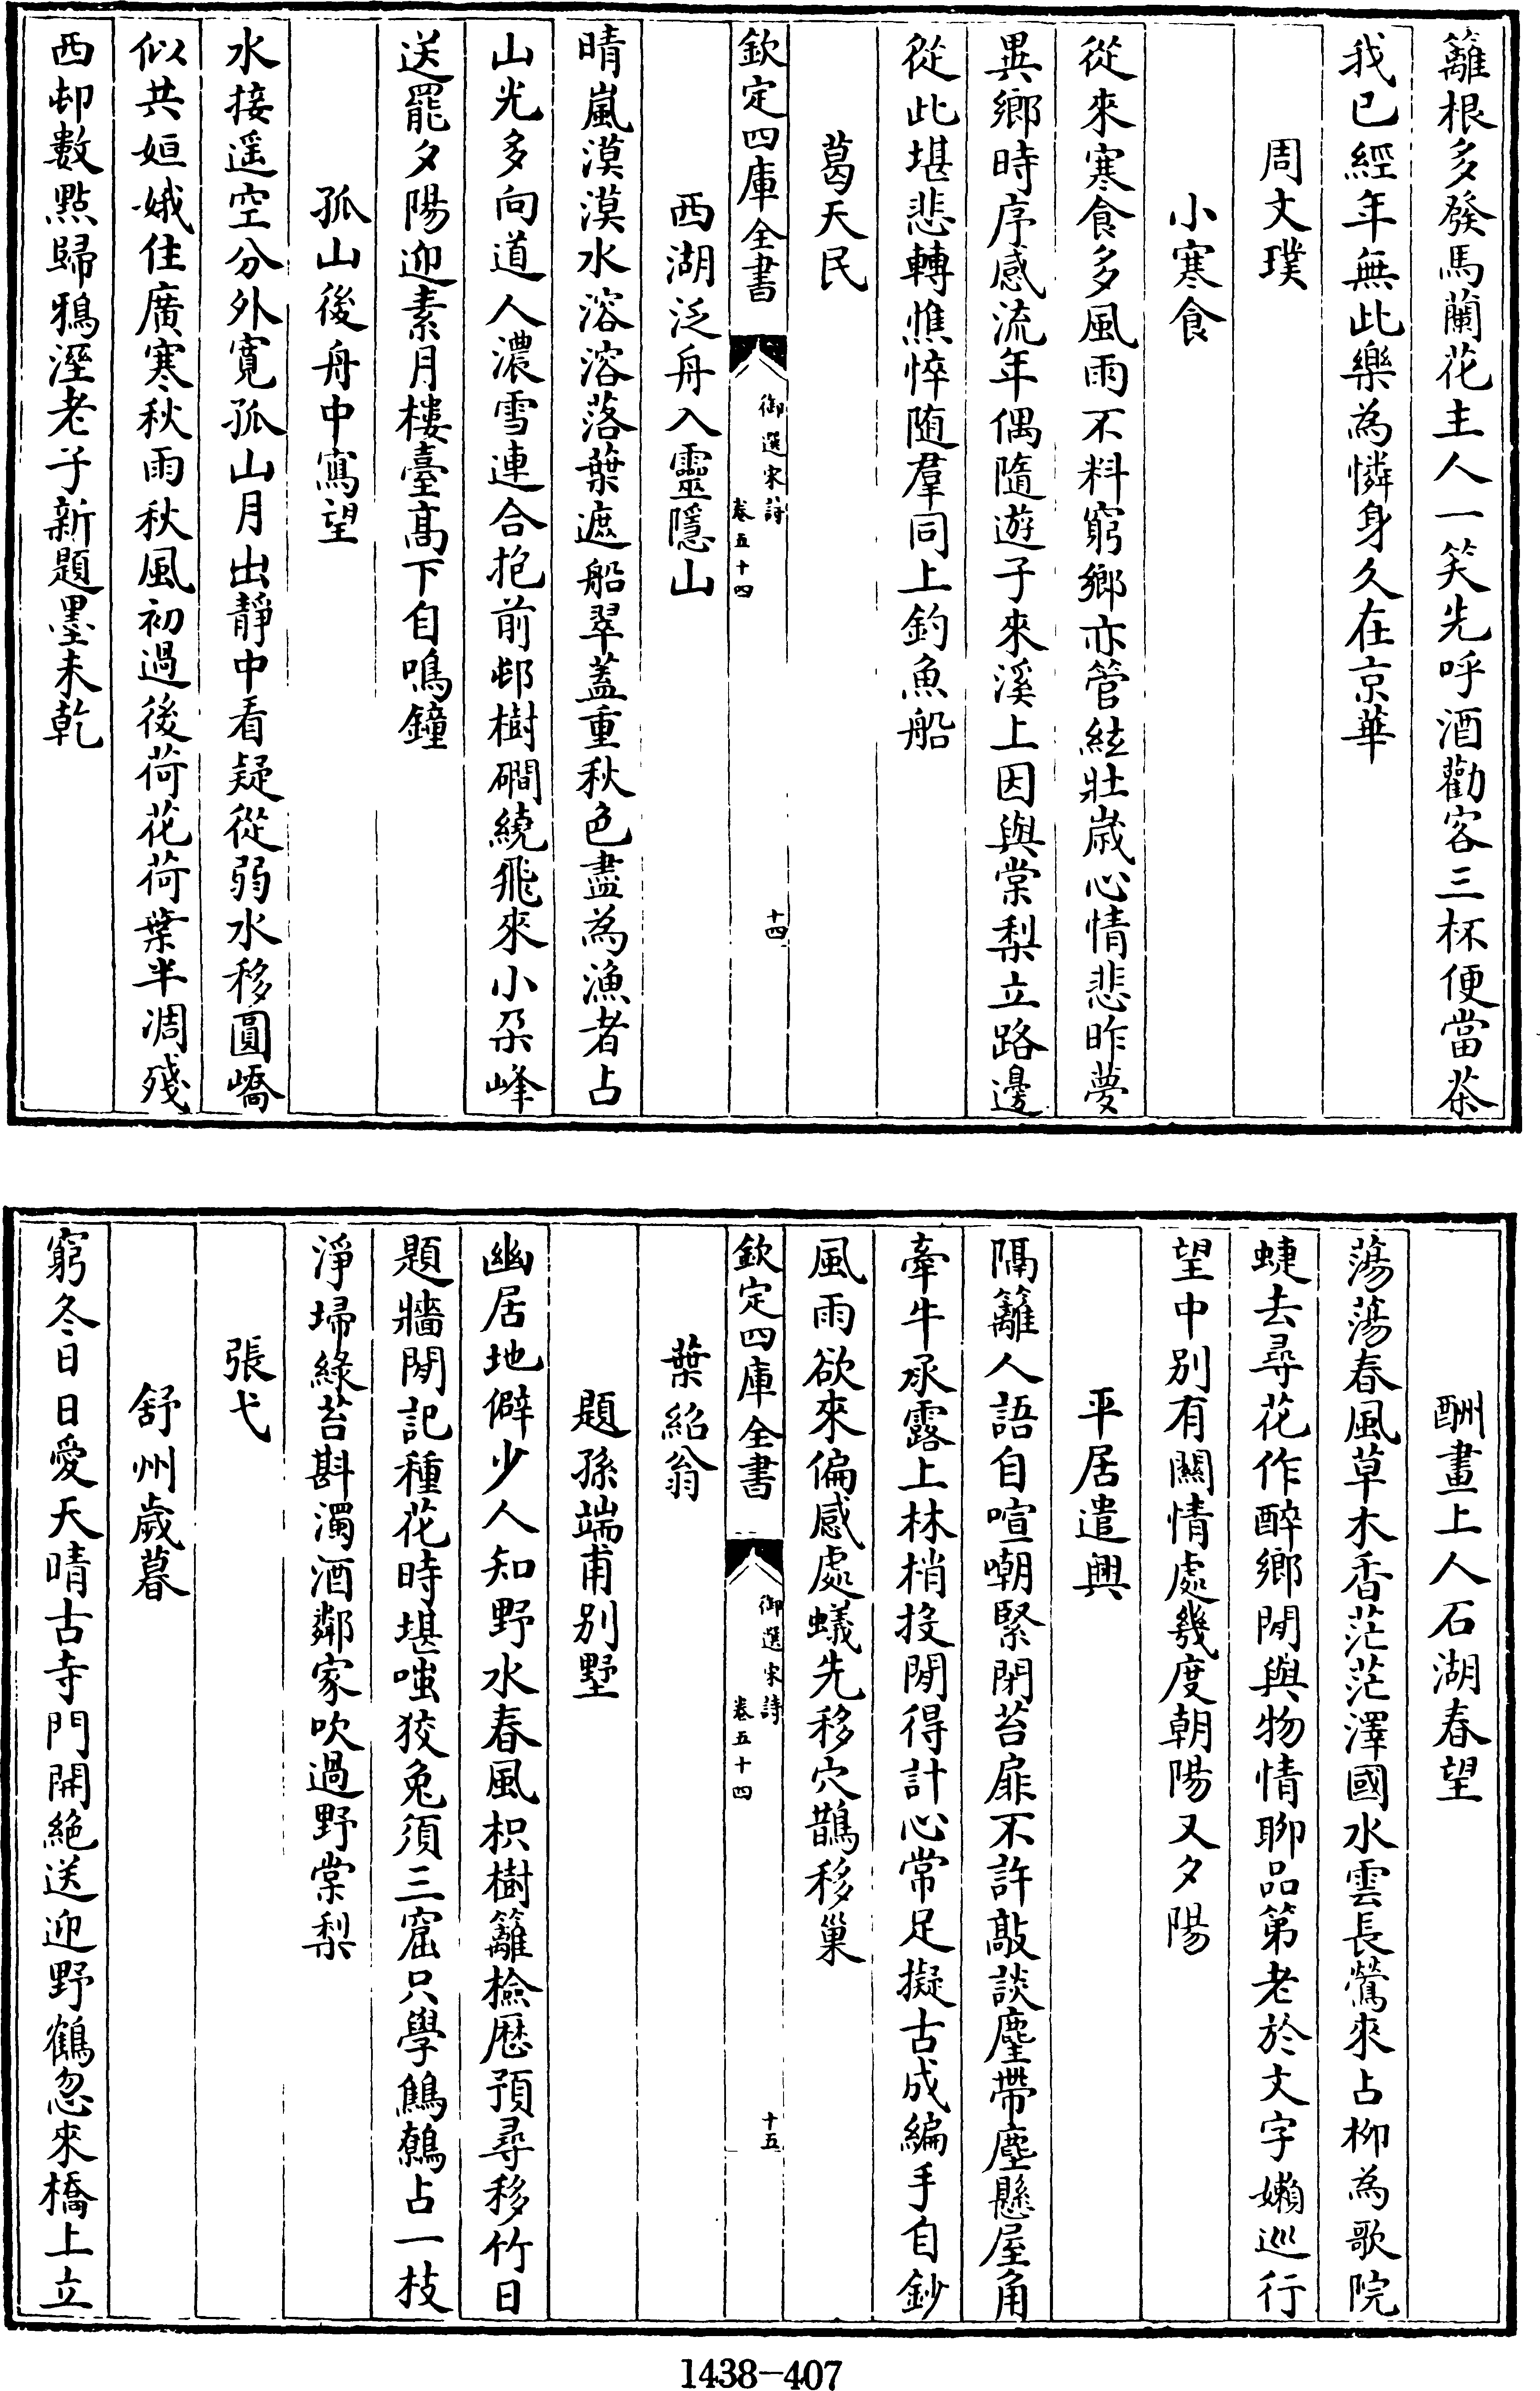 籬根多發馬蘭花主人一笑先呼酒勸客三杯便當茶
我已經年無此樂為憐身久在京華
周文璞
小寒食
從來寒食多風雨不料窮鄉亦管絃壯歲心情悲昨夢
異鄉時序感流年偶隨遊子來溪上因與棠梨立路邊
從此堪悲轉憔悴随羣同上釣魚船
葛天民
欽定四庫全書
御選宋詩
卷五十四
十四
西湖泛舟入靈隱山
晴嵐漠漠水溶溶落葉遮船翠蓋重秋色盡為漁者占
山光多向道人濃雪連合抱前邨樹磵繞飛來小朶峰
送罷夕陽迎素月樓臺髙下自鳴鐘
孤山後舟中寓望
水接遥空分外寛孤山月出靜中看疑從弱水移圓嶠
似共姮娥住廣寒秋雨秋風初過後荷花荷葉半凋殘
西邨數點歸鴉溼老子新題墨未乾
酬畫上人石湖春望
蕩蕩春風草木香茫茫澤國水雲長鶯來占柳為歌院
蜨去尋花作醉鄉閒與物情聊品第老於文字嬾巡行
望中别有關情處幾度朝陽又夕陽
平居遣興
隔籬人語自喧嘲緊閉苔扉不許敲談麈帶塵懸屋角
牽牛承露上林梢投閒得計心常足擬古成編手自鈔
風雨欲來偏感處蟻先移穴鵲移巢
欽定四庫全書
御選宋詩
卷五十四
十五
葉紹翁
題孫端甫别墅
幽居地僻少人知野水春風枳樹籬檢厯預尋移竹日
題牆閒記種花時堪嗤狡兔須三窟只學鷦鷯占一枝
淨埽綠苔斟濁酒鄰家吹過野棠梨
張弋
舒州歲暮
窮冬日日愛天晴古寺門開絶送迎野鶴忽來橋上立
1438-407